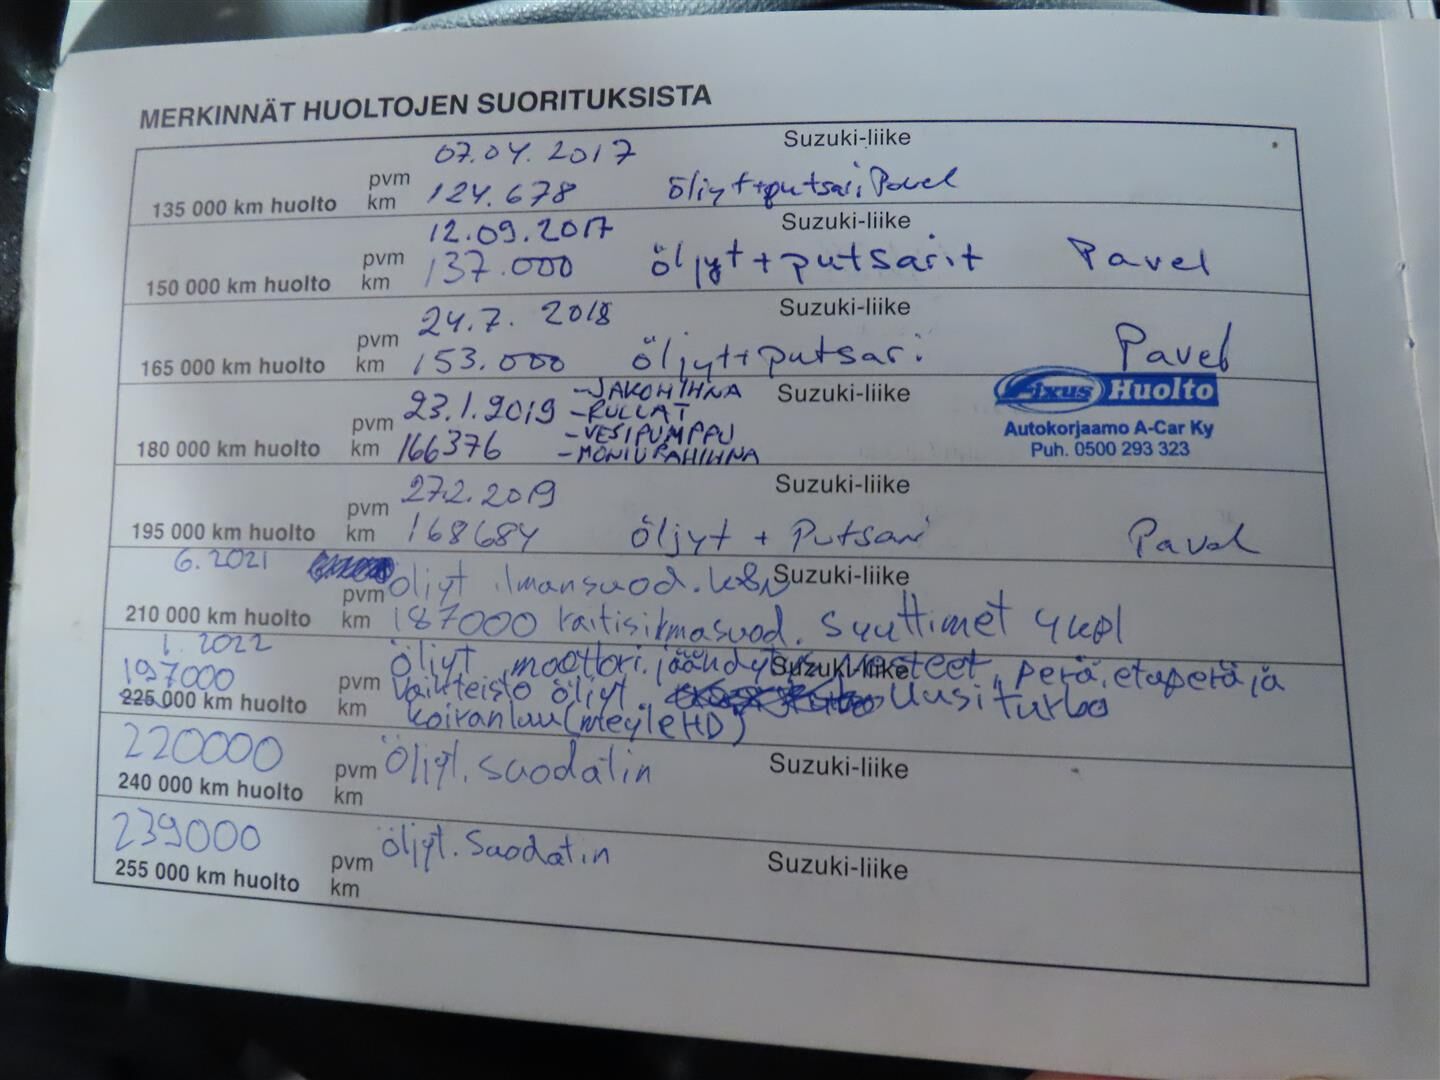 MERKINNÄT HUOLTOJEN SUORITUKSISTA
07.04.2017 Suzuki-liike
135 000 km huolto pvm km 124.678 öljyt+putsari Pavel
12.09.2017 Suzuki-liike
150 000 km huolto pvm km 137.000 öljyt+putsarit Pavel
24.7. 2018 Suzuki-liike
165 000 km huolto pvm km 153.000 öljyt+putsari Pavel
23.1.2019 -JAKOHIHNA Suzuki-liike
-RULLAT
180 000 km huolto pvm km 166376 -VESIPUMPPU
-MONIURAHIHNA
Fixus Huolto
Autokorjaamo A-Car Ky
Puh. 0500 293 323
27.2.2019 Suzuki-liike
195 000 km huolto pvm km 168684 öljyt + Putsari Pavel
6.2021 öljyt ilmansuod. K&N Suzuki-liike
210 000 km huolto pvm km 187000 raitisilmasuod. Suuttimet 4kpl
1. 2022 öljyt moottori. jäähdytys nesteet, perä, etuperä ja
197000 Suzuki-liike
225 000 km huolto pvm km vaihteisto öljyt. Uusi turbo
koiranluu (meyle HD)
220000 öljyt. suodatin Suzuki-liike
240 000 km huolto pvm km
239000 öljyt. Suodatin Suzuki-liike
255 000 km huolto pvm km